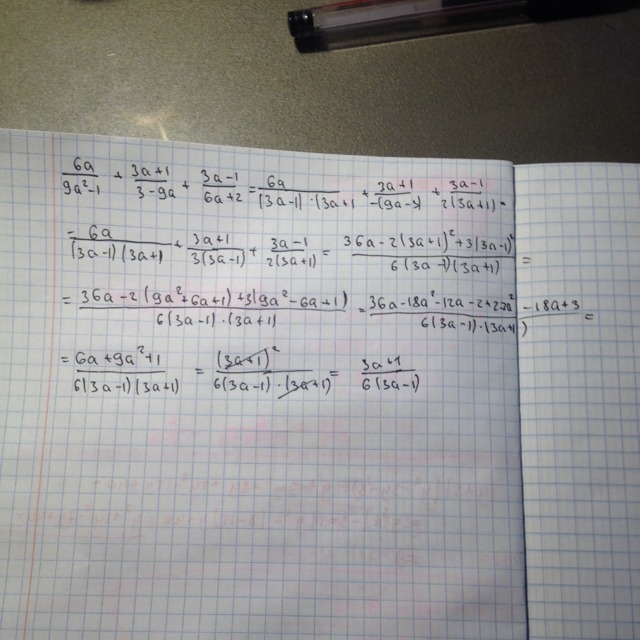 6a/(9a²-1) + (3a+1)/(3-9a) + (3a-1)/(6a+2) = 6a/((3a-1)·(3a+1) + (3a+1)/(-(9a-3)) + (3a-1)/(2(3a+1)) =
= 6a/((3a-1)(3a+1) + (3a+1)/(3(3a-1)) + (3a-1)/(2(3a+1)) = (36a-2(3a+1)²+3(3a-1)²)/(6(3a-1)(3a+1)) =
= (36a-2(9a²+6a+1)+3(9a²-6a+1))/(6(3a-1)·(3a+1)) = (36a-18a²-12a-2+27a²-18a+3)/(6(3a-1)·(3a+1)) =
= (6a+9a²+1)/(6(3a-1)(3a+1)) = (3a+1)²/(6(3a-1)·(3a+1)) = (3a+1)/(6(3a-1))